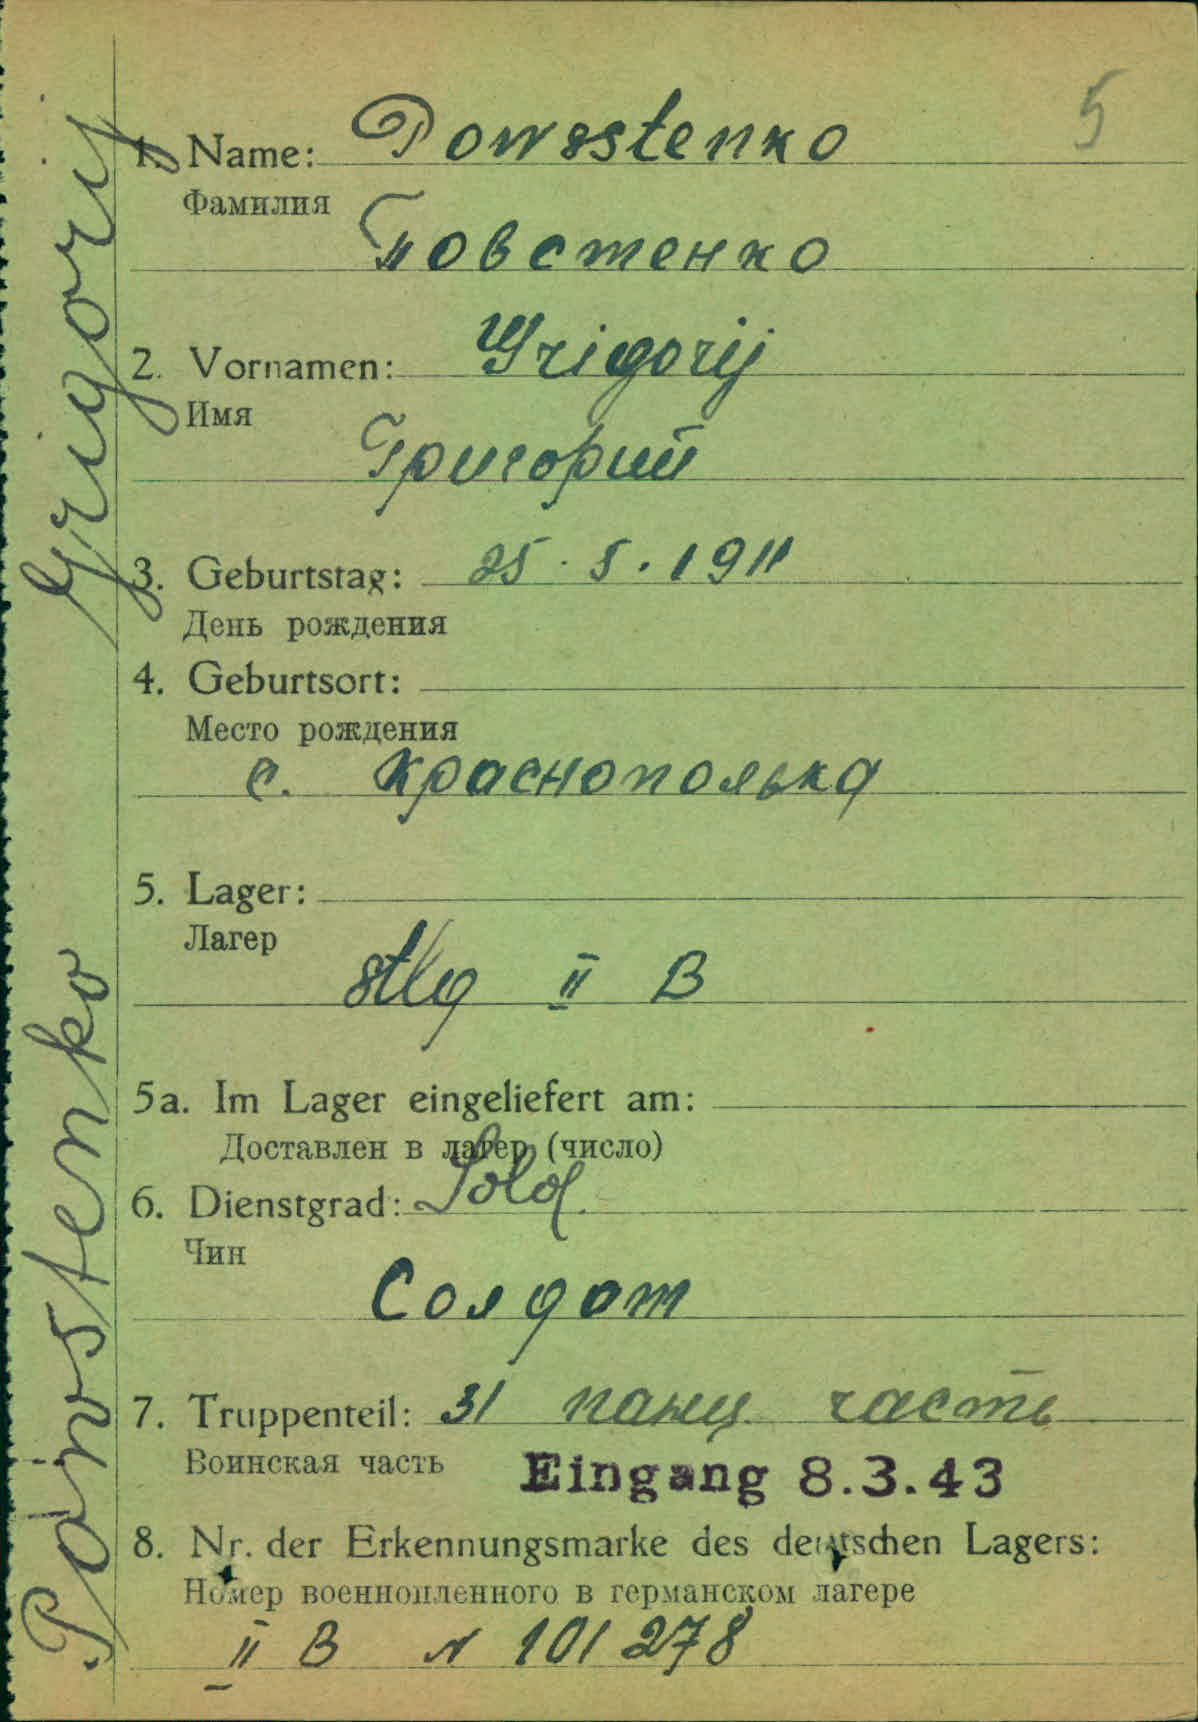 5
1. Name: Powsstenko
Фамилия
Повстенко
2. Vornamen: Grigorij
Имя
Григорий
3. Geburtstag: 25.5.1911
День рождения
4. Geburtsort:
Место рождения
с. Краснополька
5. Lager:
Лагер
Stlg II B
5a. Im Lager eingeliefert am:
Доставлен в лагер (число)
6. Dienstgrad: Sold.
Чин
Солдат
7. Truppenteil: 31 часть
Воинская часть
Eingang 8.3.43
8. Nr. der Erkennungsmarke des deutschen Lagers:
Номер военнопленного в германском лагере
II B N 101278
Powstenko Grigorij